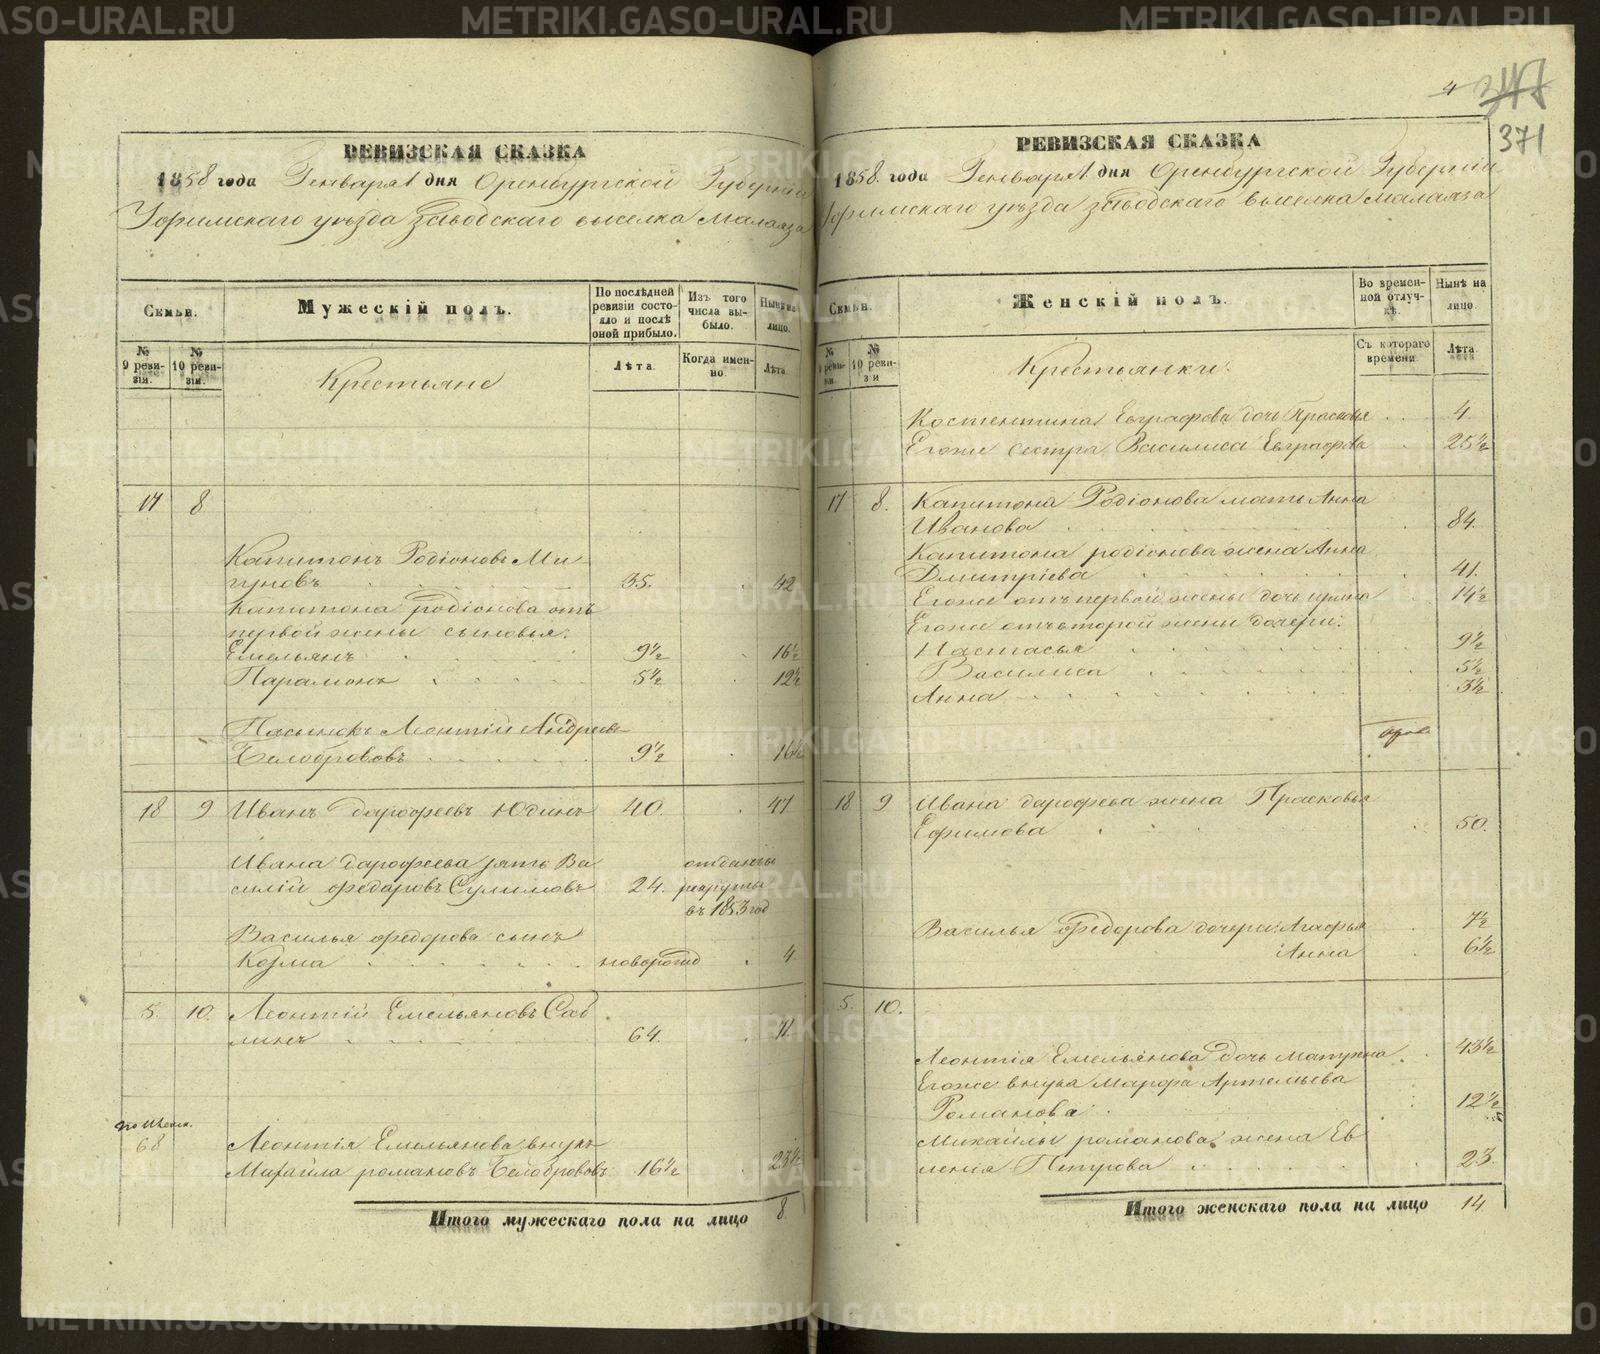 4 347
371
РЕВИЗСКАЯ СКАЗКА
1858 года Генваря 1 дня Оренбургской Губерніи
Уфимскаго уѣзда заводскаго выселка Малаяза
Семьи.
Мужескій полъ.
По послѣдней ревизіи состояло и послѣ оной прибыло.
Изъ того числа выбыло.
Нынѣ на лицо.
№ 9 ревизіи.
№ 10 ревизіи.
Крестьяне
Лѣта.
Когда именно.
Лѣта.
17 8
Капитонъ Родіоновъ Ми-
гуновъ 35. 42
Капитона родіонова отъ
первой жены сыновья:
Емельянъ 9½ 16½
Парамонъ 5½ 12½
Пасынокъ Леонтій Андреевъ
Белобрововъ 9½ 16½
18 9 Иванъ дарофеевъ Юдинъ 40. 47
Ивана дарофеева зять Ва
силій федаровъ Сулимовъ 24. отданъ въ рекруты въ 1853 год
Василья федорова сынъ
Козма новорожд 4
5. 10. Леонтій Емельяновъ Саб
линъ 64. 71.
68
Леонтія Емельянова внукъ
Михайла романовъ Белобрововъ 16½ 23½
Итого мужескаго пола на лицо 8
РЕВИЗСКАЯ СКАЗКА
1858. года Генваря 1 дня Оренбургской Губерніи
Уфимскаго уѣзда заводскаго выселка малаяза
Семьи.
Женскій полъ.
Во временной отлучкѣ.
Нынѣ на лицо.
№ 9 ревизіи
№ 10 ревизіи
Крестьянки.
Съ котораго времени.
Лѣта.
Костентина Евграфова дочь Прасковья 4
Егоже сестра Василиса Евграфова 25½
17 8. Капитона Родіонова мать Анна
Иванова 84.
Капитона родіонова жена Анна
Дмитріева 41.
Егоже отъ первой жены дочь ирина 14½
Егоже отъ второй жены дочери:
Настасья 9½
Василиса 5½
Анна 3½
18 9 Ивана дарофева жена Прасковья
Ефимова 50.
Василья Федорова дочери: Агафья 7½
Анна 6½
5. 10.
Леонтія Емельянова дочь матрена 43½
Егоже внука Марфа Артемьева
Романова 12½
Михайлы романова жена Ев
ленія Петрова 23.
Итого женскаго пола на лицо 14
METRIKI.GASO-URAL.RU